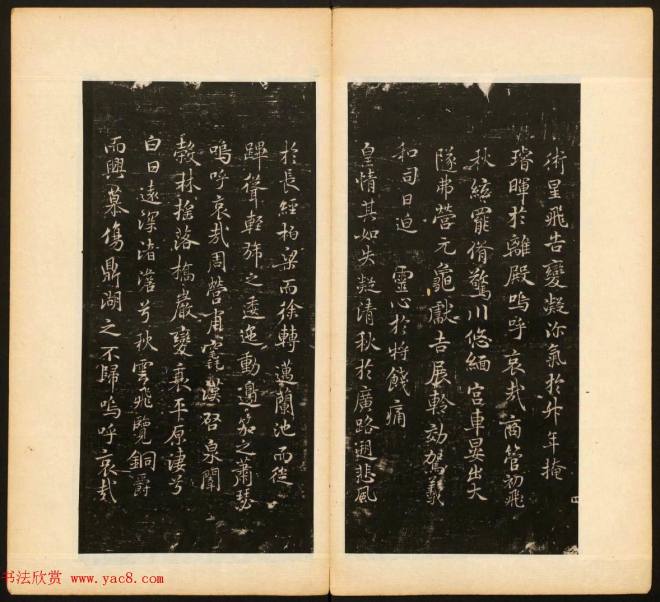 術星飛告變凝沴氣於升年掩
璿暉於離殿嗚呼哀哉商管初飛
秋絃罷脩驚川悠緬宮車晏出大
隧弗營元龜獻吉展軨効駕羲
和司日迫 靈心於將餞痛
皇情其如失凝清秋於廣路迴悲風
於長經柏梁而徐轉邁蘭池而從
蹕聲輕旆之逶迤動邊笳之蕭瑟
嗚呼哀哉周營甫竁漢啓泉闈
穀林搖落橋巖變衰平原淒兮
白日遠深渚澹兮秋雲飛覽銅爵
而興慕傷鼎湖之不歸嗚呼哀哉
书法欣赏 www.yac8.com